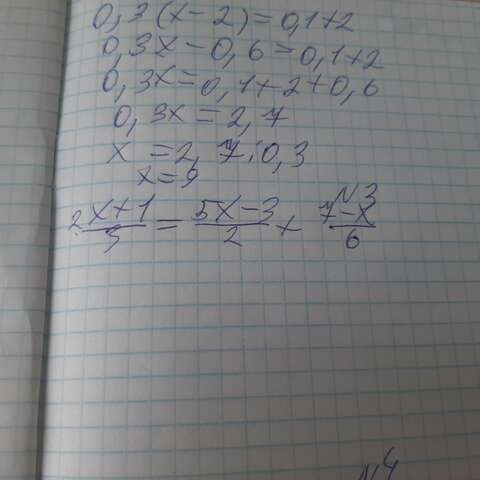 0,3(x-2)=0,1+2
0,3x-0,6=0,1+2
0,3x=0,1+2+0,6
0,3x=2,7
x=2,7:0,3
x=9
N3
2x+1/3=5x-3/2+7-x/6
N4